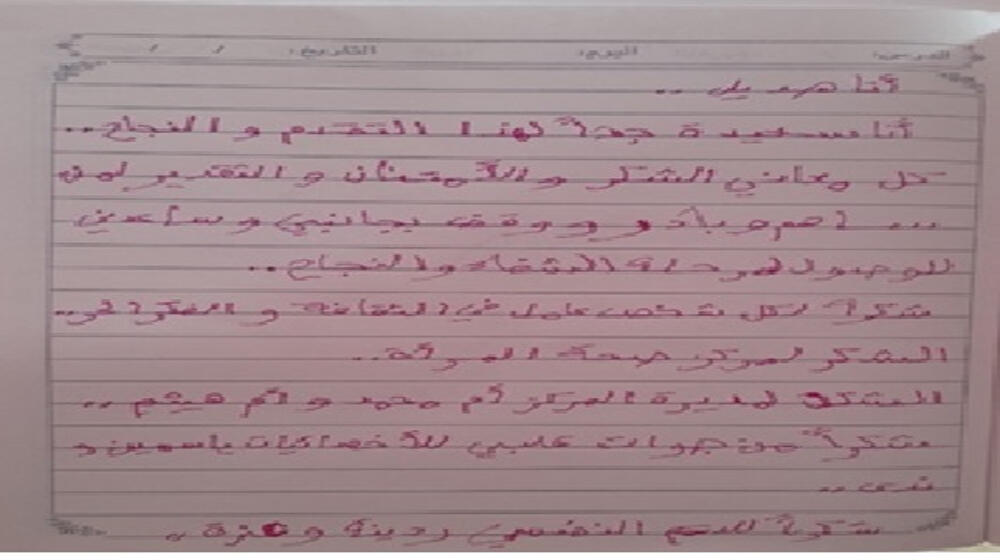 الدرس: اليوم: التاريخ: / /
أنا هديل ..
أنا سعيدة جداً لهذا التقدم والنجاح..
كل معاني الشكر والأمتنان والتقدير لمن
... ساهم وبادر ووقف بجانبي وساعدني
للوصول لمرحلة الشفاء والنجاح..
شكراً لكل شخص عامل في الثقافة والفكر الحر..
الشكر لمركز صحة المرأة..
الشكر لمديرة المركز أم محمد وأم هيثم ..
شكراً من جوات قلبي للأخصائيات ياسمين و
ندى ..
شكراً للدعم النفسي ردينة وعزة ..